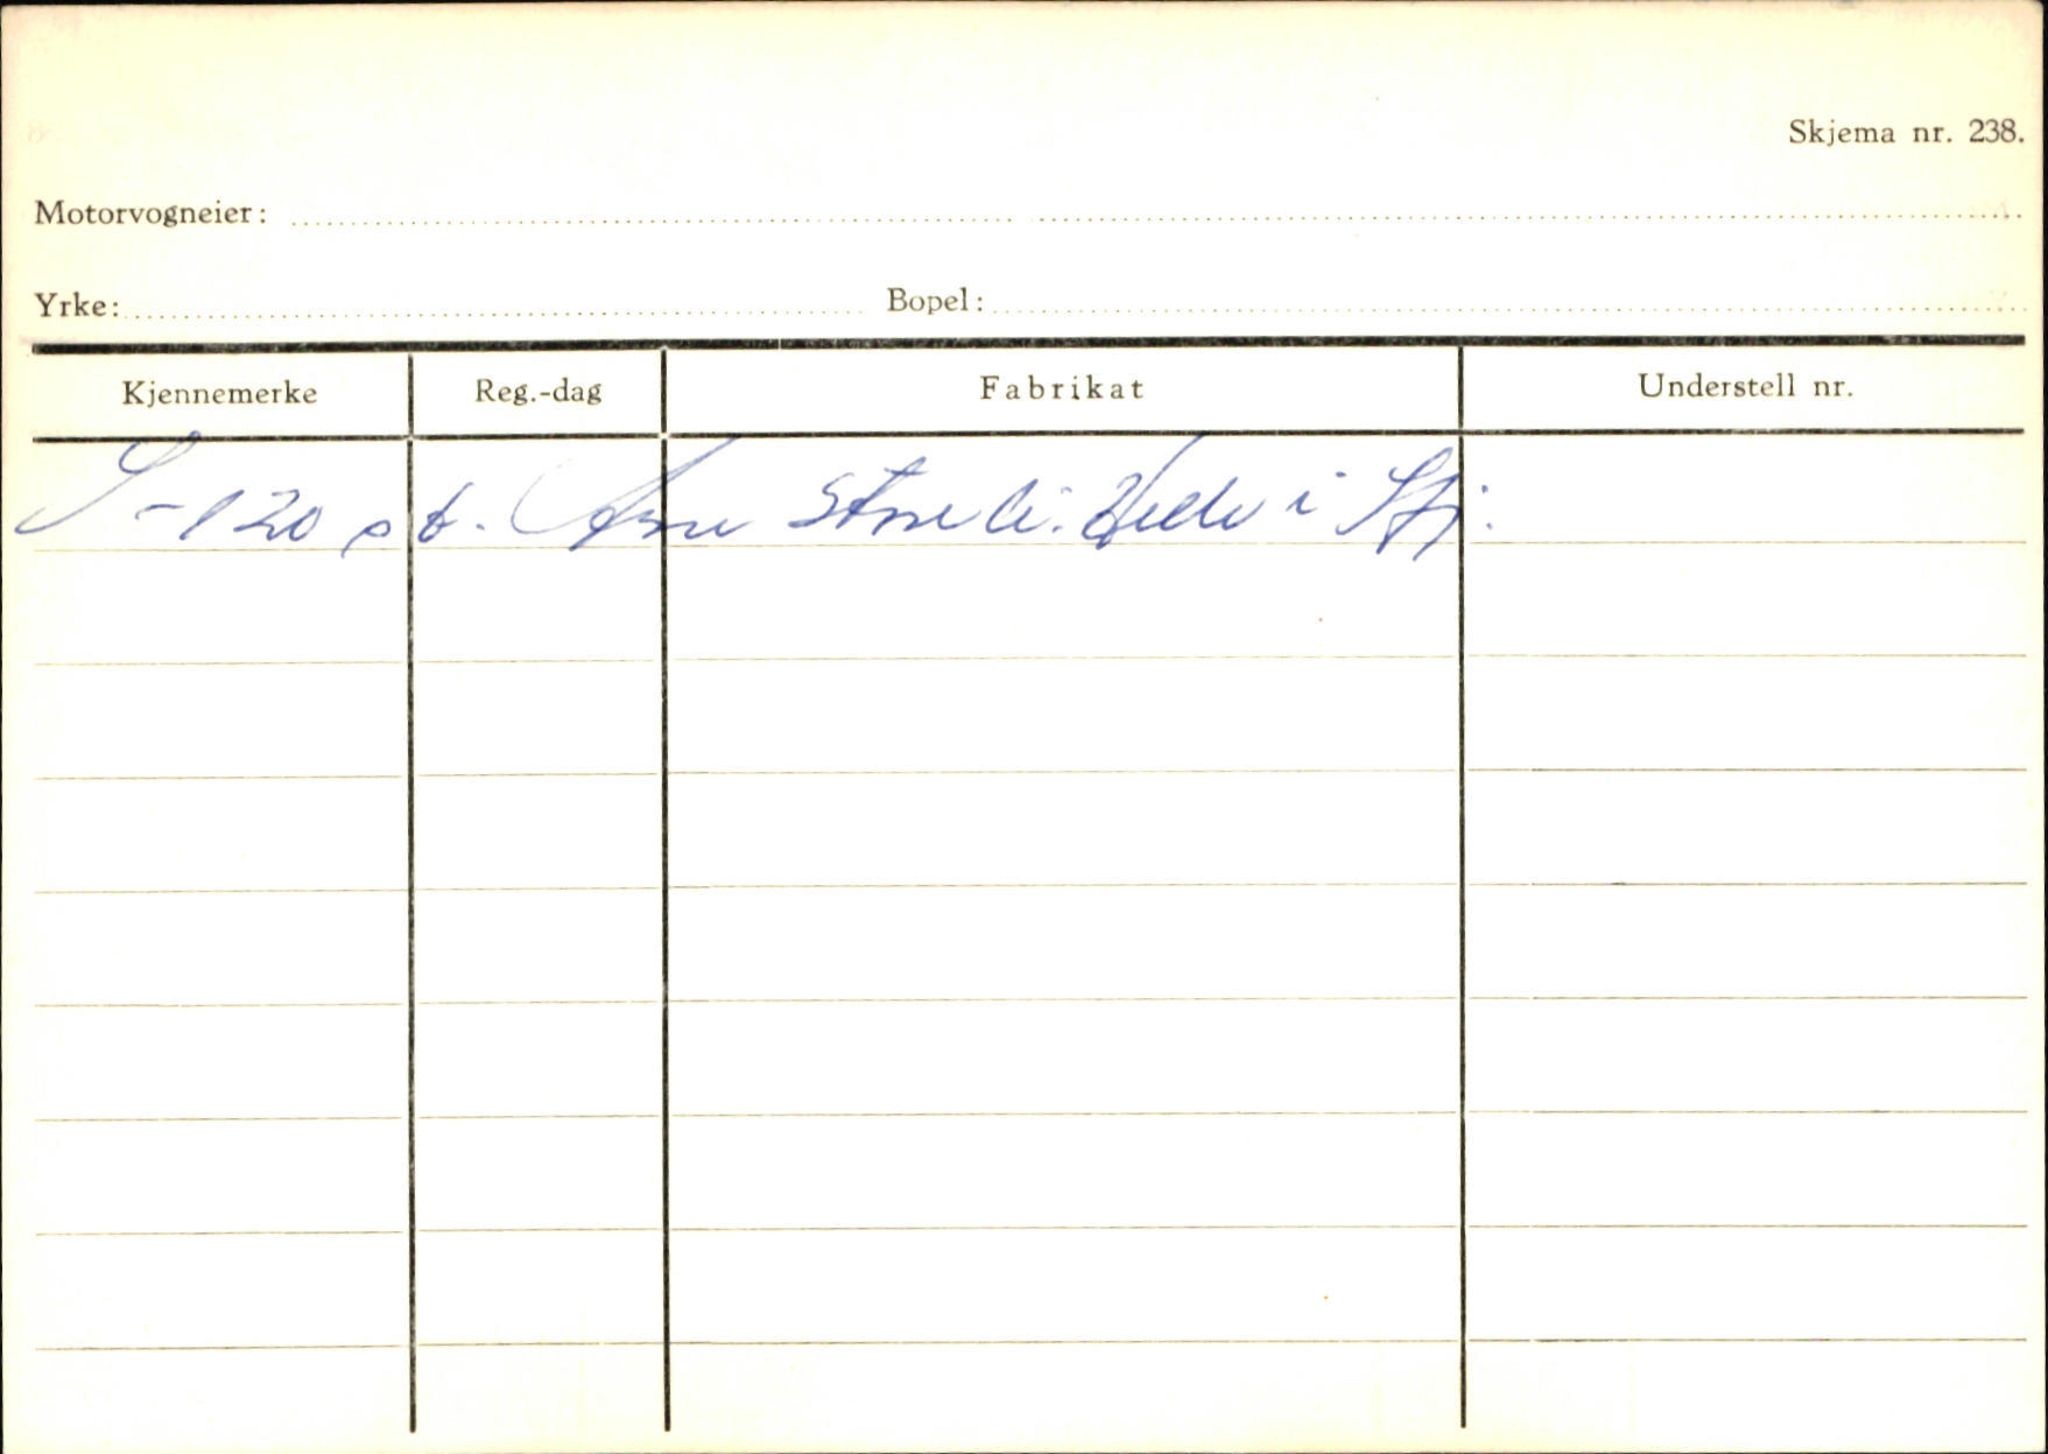 Skjema nr. 238.
Motorvogneier:
Yrke: Bopel:
Kjennemerke Reg.-dag Fabrikat Understell nr.
S-120 i Sfj.